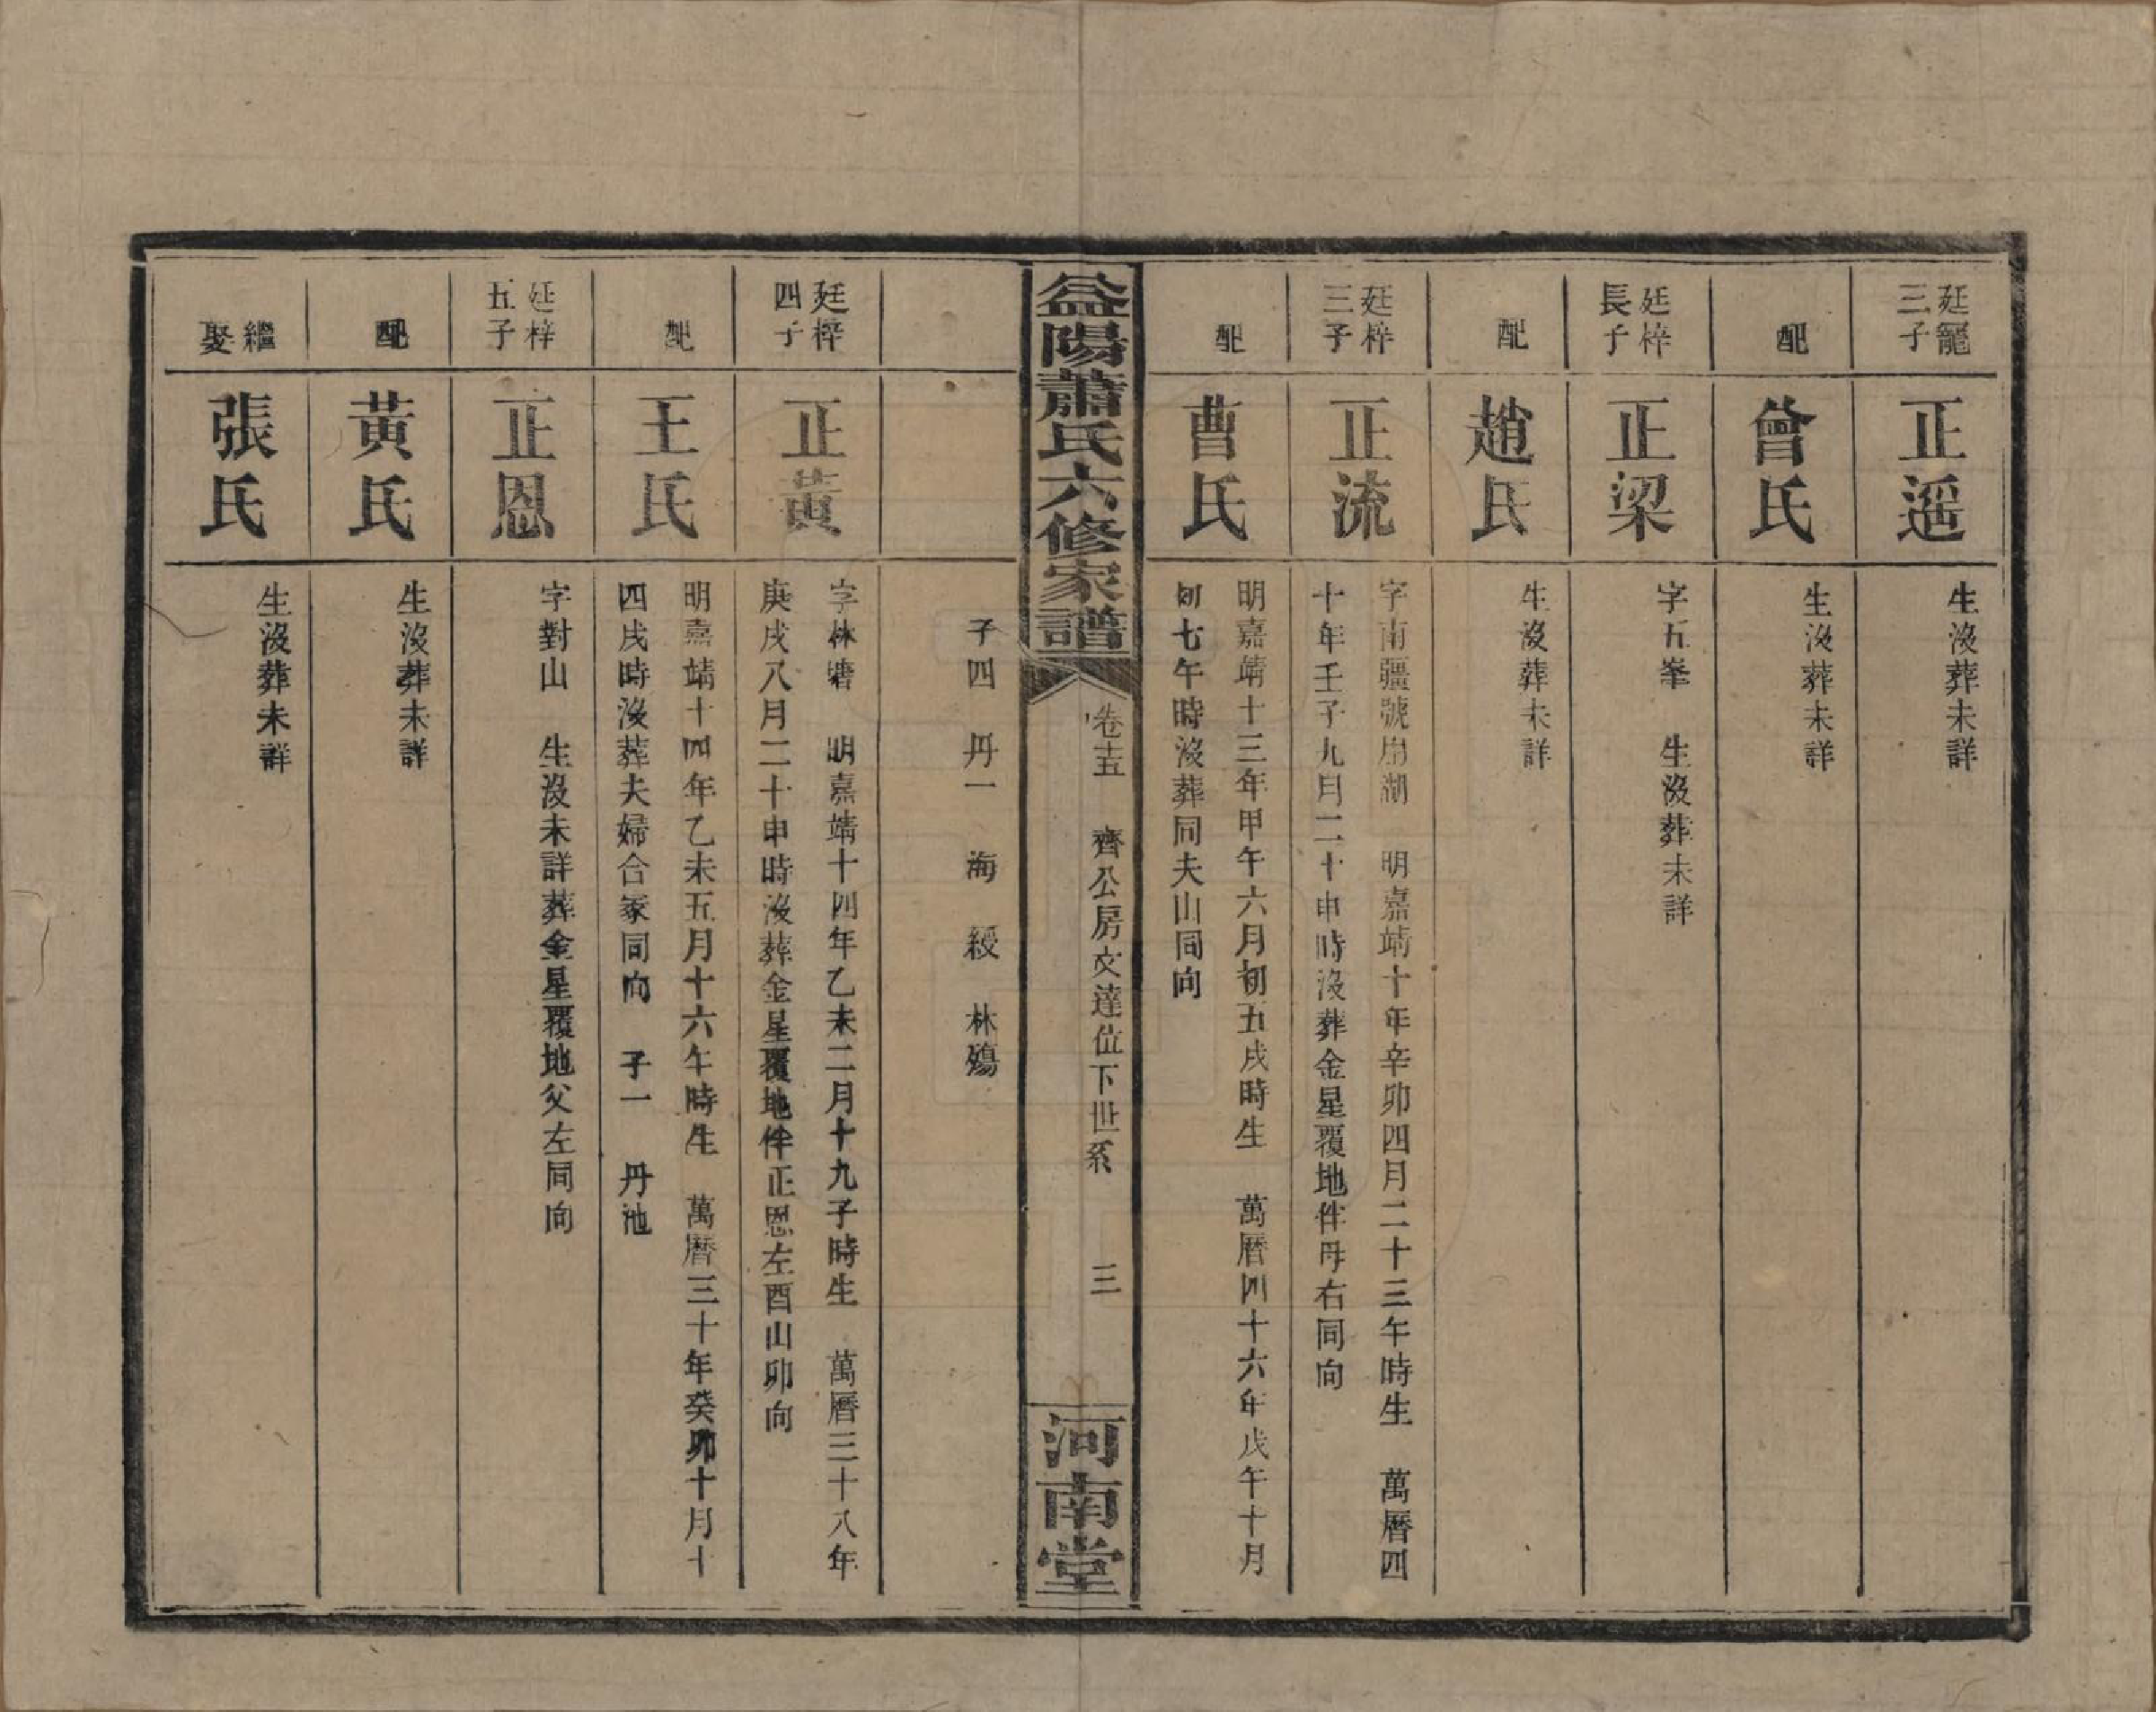 廷寵三子
正遥
生沒葬未詳
配
曾氏
生沒葬未詳
廷梓長子
正梁
字五峯 生沒葬未詳
配
趙氏
生沒葬未詳
廷梓三子
正流
字南疆號湖 明嘉靖十年辛卯四月二十三午時生 萬曆四
十年壬子九月二十申時沒葬金星覆地伴母右同向
配
曹氏
明嘉靖十三年甲午六月初五戌時生 萬曆四十六年戊午十月
初七午時沒葬同夫山同向
益陽蕭氏六修家譜
卷十五 齊公房文達位下世系 三
河南堂
子四 丹一 海 綬 林殤
廷梓四子
正黃
字林塘 明嘉靖十四年乙未二月十九子時生 萬曆三十八年
庚戌八月二十申時沒葬金星覆地伴正恩左酉山卯向
配
王氏
明嘉靖十四年乙未五月十六午時生 萬曆三十年癸卯十月十
四戌時沒葬夫婦合冢同向 子一 丹池
廷梓五子
正恩
字對山 生沒未詳葬金星覆地父左同向
配
黃氏
生沒葬未詳
繼娶
張氏
生沒葬未詳